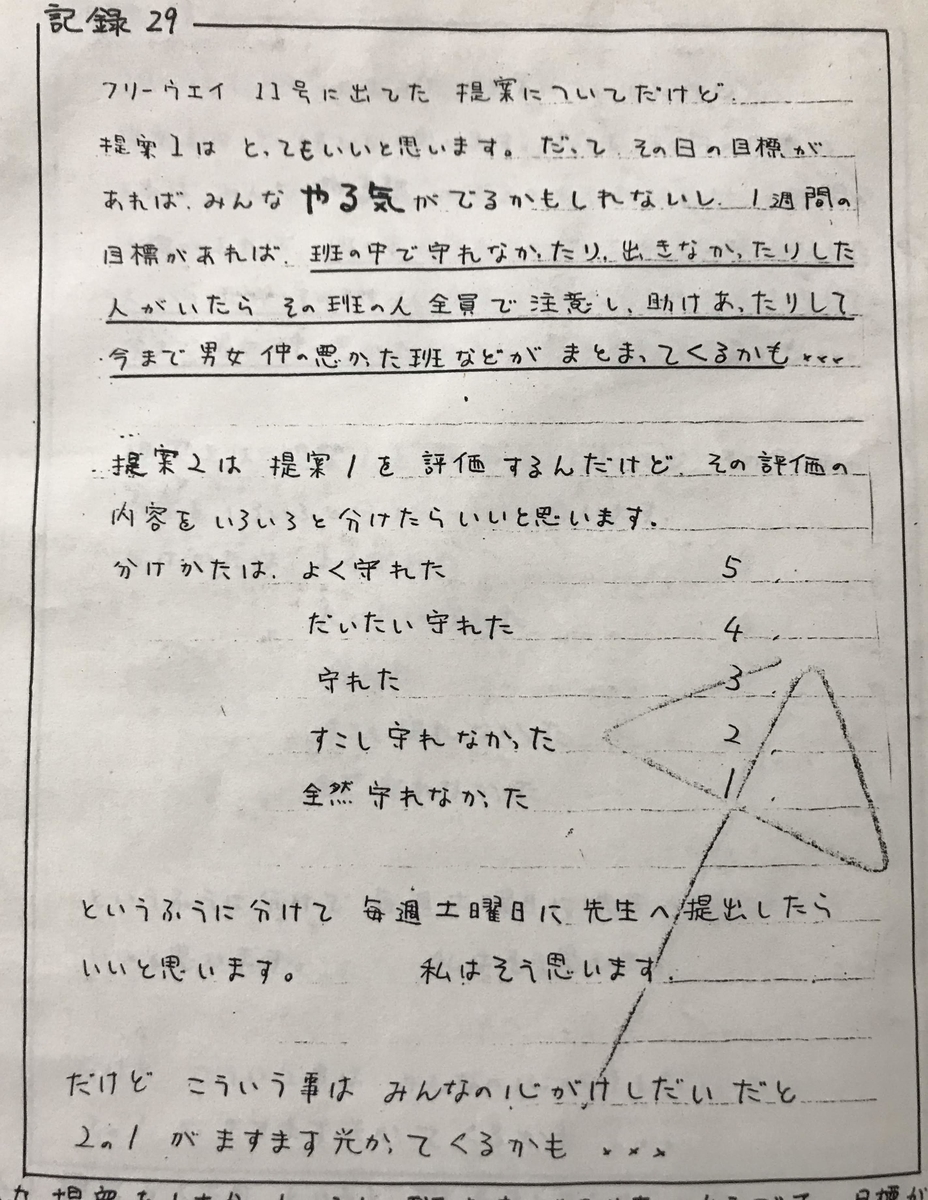 記録 29
フリーウエイ 11号に出てた 提案についてだけど.
提案1は とってもいいと思います。だって その日の目標が
あれば、みんな やる気がでるかもしれないし、1週間の
目標があれば、班の中で守れなかったり、出きなかったりした
人がいたら その班の人 全員で注意し、助けあったりして
今まで男女仲の悪かった班などがまとまってくるかも×××
提案2は 提案1を評価するんだけど、その評価の
内容をいろいろと分けたらいいと思います。
分けかたは、よく守れた 5
だいたい守れた 4
守れた 3
すこし守れなかった 2
全然守れなかった 1
というふうに分けて 毎週土曜日に先生へ提出したら
いいと思います。 私はそう思います.
だけど こういう事は みんなの心がけしだいだと
2の1 がますます光かってくるかも ×××